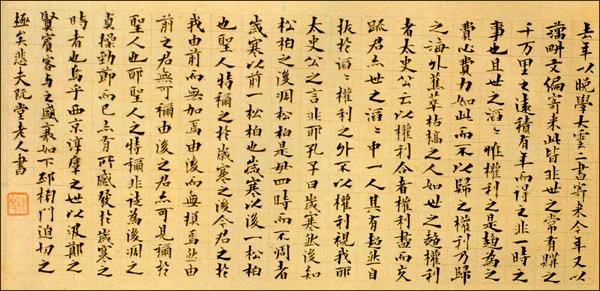 去年以晩學大雲二書寄來今年又以
藕畊文編寄來此皆非世之常有購之
千万里之遠積有年而得之非一時之
事也且世之滔〻惟權利之是趨爲之
費心費力如此而不以歸之權利乃歸
之海外蕉萃枯槁之人如世之趨權利
者太史公云以權利合者權利盡而交
疎君亦世之滔〻中一人其有超然自
拔於滔〻權利之外不以權利視我耶
太史公之言非耶孔子曰歲寒然後知
松柏之後凋松柏是毌四時而不凋者
歲寒以前一松柏也歲寒以後一松柏
也聖人特稱之於歲寒之後今君之於
我由前而無加焉由後而無損焉然由
前之君無可稱由後之君亦可見稱於
聖人也耶聖人之特稱非徒爲後凋之
貞操勁節而已亦有所感發於歲寒之
時者也烏乎西京淳厖之世以汲鄭之
賢賓客與之盛衰如下邳榜門迫切之
極矣悲夫阮堂老人書